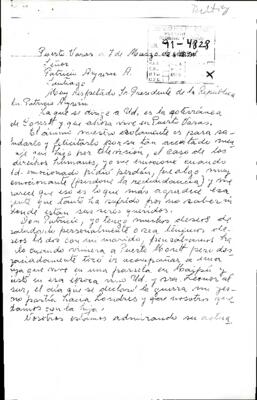 Puerto Varas a 7 de Marzo de
91-4828
Señor
Patricio Aylwin A.
Santiago
Muy Respetado Sr Presidente de la República
Dn Patricio Aylwin
La que se dirige a Ud. es de
y que ahora vive en Puerto Varas.
El ánimo nuestro solamente es para sa-
ludarlo y felicitarlo por tan acertado men-
saje que hizo por televisión, el caso de los
derechos humanos, yo me emocioné cuando
Ud. emocionado pidió perdón, fue algo muy
emocionante (perdone la redundancia) y me
parece que eso es lo que más agradece esa
gente que tanto ha sufrido por no saber
donde están sus seres queridos.
Don Patricio, yo tengo muchos deseos de
saludarlo personalmente o sea tenemos de-
seos los dos con mi marido, pensábamos ha-
cerlo cuando viniera a Puerto Montt pero des-
graciadamente tuve que acompañar a una
hija que vive en una parcela en Maipú y
justo en esa época vino Ud. y sra. Leonor al
sur, el día que se declaró la guerra mi yer-
no partía hacia Londres y por nosotros que
estamos con la hija.
Nosotros estamos admirando su